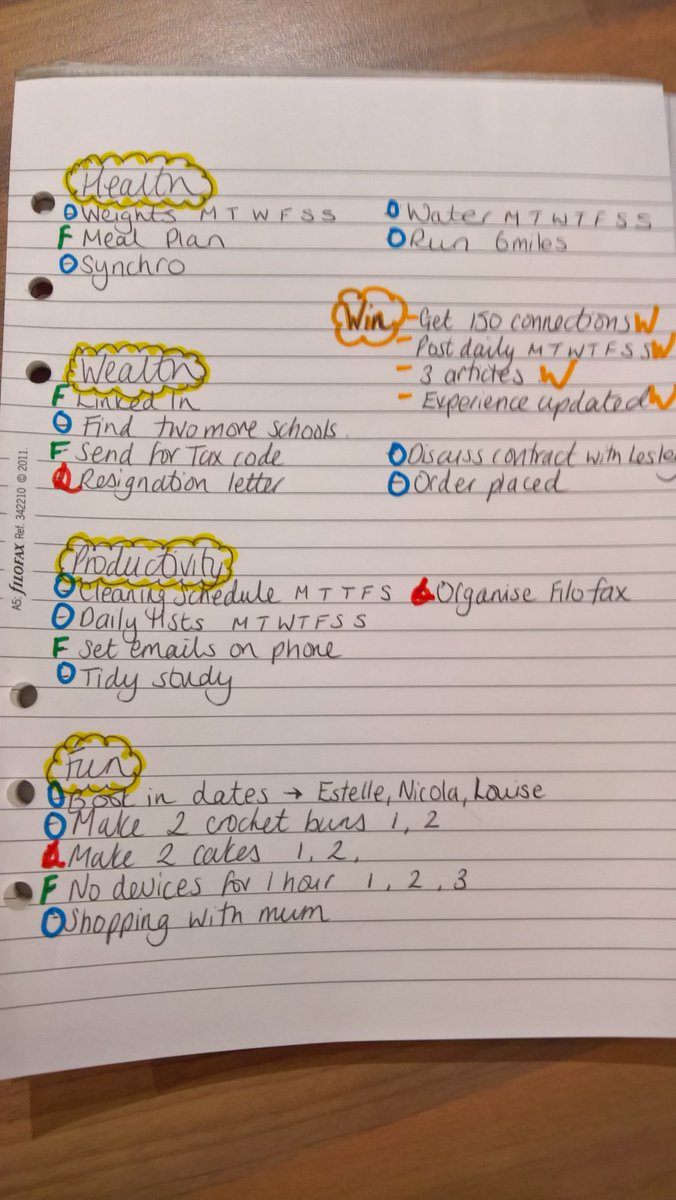 Health
O Weights M T W F S S
O Water M T W T F S S
F Meal Plan
O Run 6miles
O Synchro
Win
- Get 150 connections W
- Post daily M T W T F S S W
- 3 articles W
- Experience updated W
Wealth
F Linked In
O Find two more schools.
F Send for Tax code
O Discuss contract with Lesley
Resignation letter
O Order placed
Productivity
O Cleaning schedule M T T F S
Organise Filofax
O Daily lists M T W T F S S
F Set emails on phone
O Tidy study
Fun
O Book in dates → Estelle, Nicola, Louise
O Make 2 crochet buns 1, 2
Make 2 cakes 1, 2,
F No devices for 1 hour 1, 2, 3
O Shopping with mum
A5: FILOFAX Ref. 342210 © 2011.